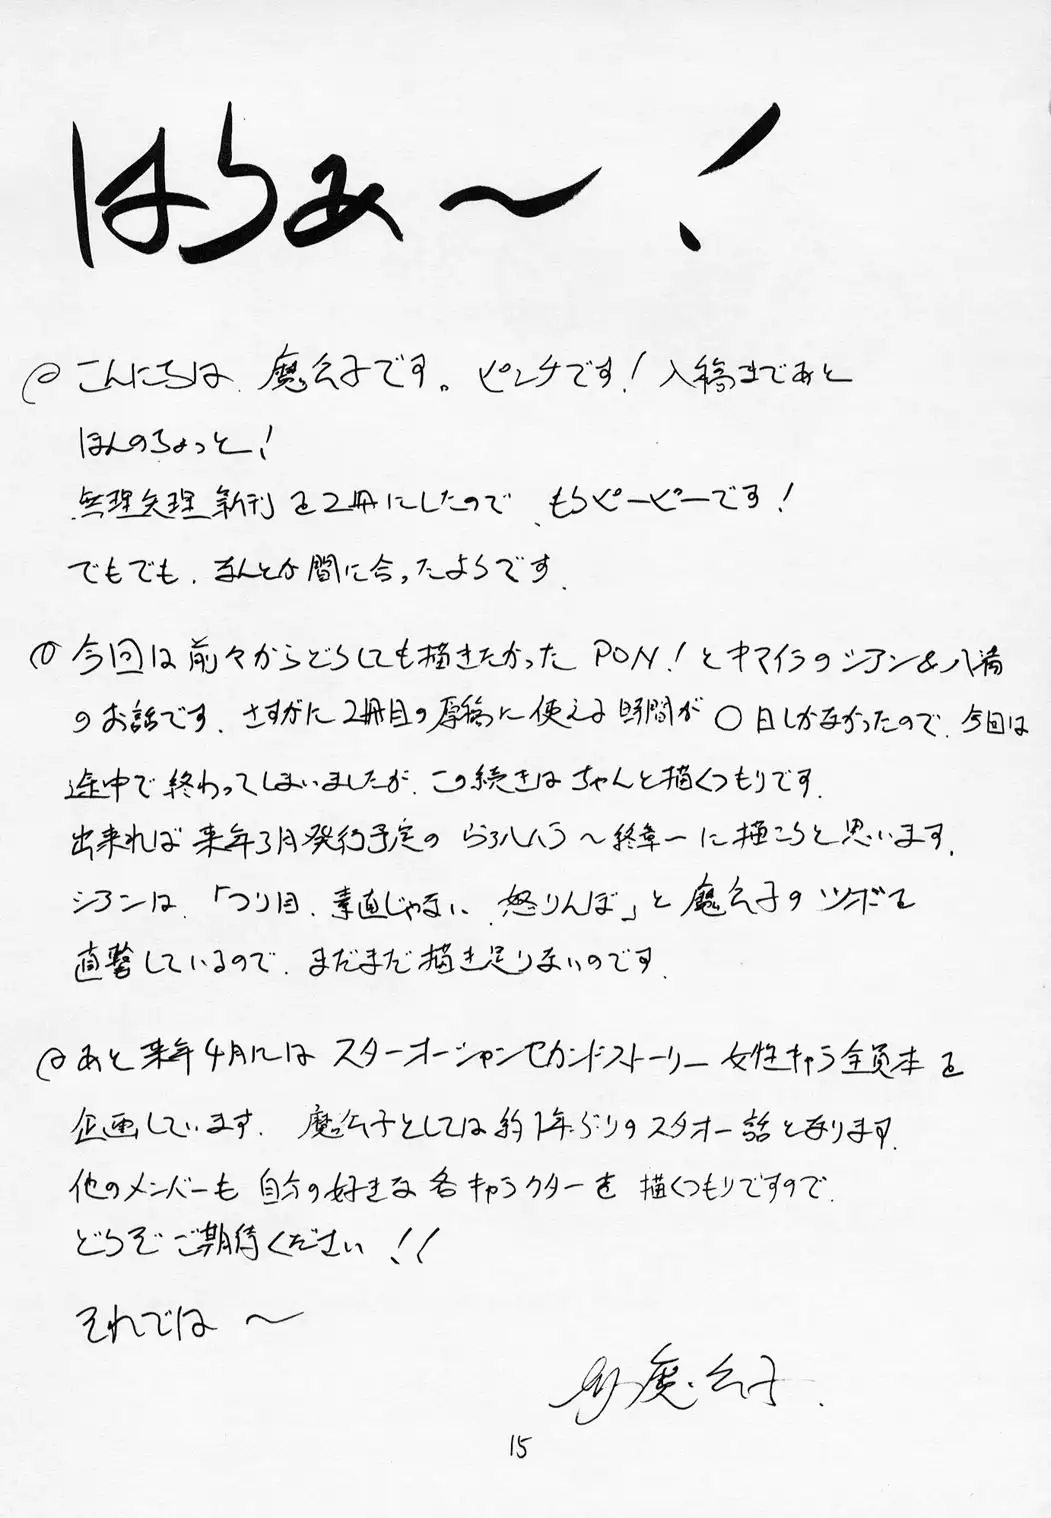 はらぁ〜!
こんにちは、魔公子です。ピンチです!入稿まであと
ほんのちょっと!
無理矢理新刊を2冊にしたので、もうピーピーです!
でもでも、なんとか間に合ったようです。
今回は前々からどうしても描きたかった PON!とキマイラのシアン&八満
のお話です。さすがに2冊目の原稿に使える時間が〇日しかなかったので、今回は
途中で終わってしまいましたが、この続きはちゃんと描くつもりです。
出来れば来年3月発行予定の 〜終章ーに描こうと思います。
シアンは、「つり目、素直じゃない、怒りんぼ」と魔公子のツボを
直撃しているので、まだまだ描き足りないのです。
あと来年4月にはスターオーシャンセカンドストーリー女性キャラ全員本を
企画しています。魔公子としては約1年ぶりのスタオー話となります。
他のメンバーも自分の好きな各キャラクターを描くつもりですので、
どうぞご期待ください!!
それでは〜
魔公子.
15